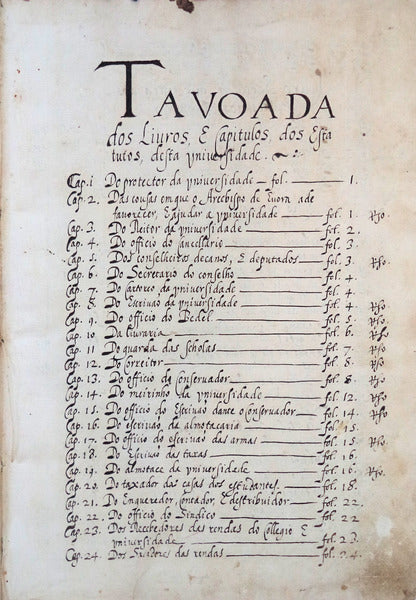 TAVOADA
dos Livros, E Capitulos, dos Esta
tutos, desta universidade.
Cap. 1 Do protector da universidade fol. 1.
Cap. 2. Das cousas em que o Arcebispo de Evora a de
favorecer, E ajudar a universidade fol. 1. Rso.
Cap. 3. Do Reitor da universidade fol. 2.
Cap. 4. Do officio do cancellario fol. 3.
Cap. 5. Dos conselheiros decanos, E deputados fol. 3. Rso.
Cap. 6. Do Secretario do conselho fol. 4.
Cap. 7. Do da universidade fol. 4.
Cap. 8. Do Escrivão da universidade fol. 4 Rso.
Cap. 9. Do officio do Bedel fol. 5. Rso.
Cap. 10 Da livraria fol. 6 Rso.
Cap. 11 Do guarda das scholas fol. 7 Rso.
Cap. 12. Do correitor fol. 8. Rso.
Cap. 13. Do officio do conservador fol. 8. Rso.
Cap. 14. Do meirinho da universidade fol. 12. Rso.
Cap. 15. Do officio do Escrivão dante o conservador fol. 14. Rso.
Cap. 16. Do escrivão da almotaçaria fol. 15.
Cap. 17. Do officio do escrivão das armas fol. 15. Rso.
Cap. 18. Do Escrivão das taxas fol. 16.
Cap. 19. Do almotace da universidade fol. 16. Rso.
Cap. 20. Do taxador das casas dos estudantes. fol. 18.
Cap. 21. Do Enqueredor, contador, E distribuidor fol. 22.
Cap. 22. Do officio do Sindico fol. 22
Cap. 23. Dos Recebedores das rendas do Collegio E
universidade fol. 23.
Cap. 24. Dos das rendas fol. 24.